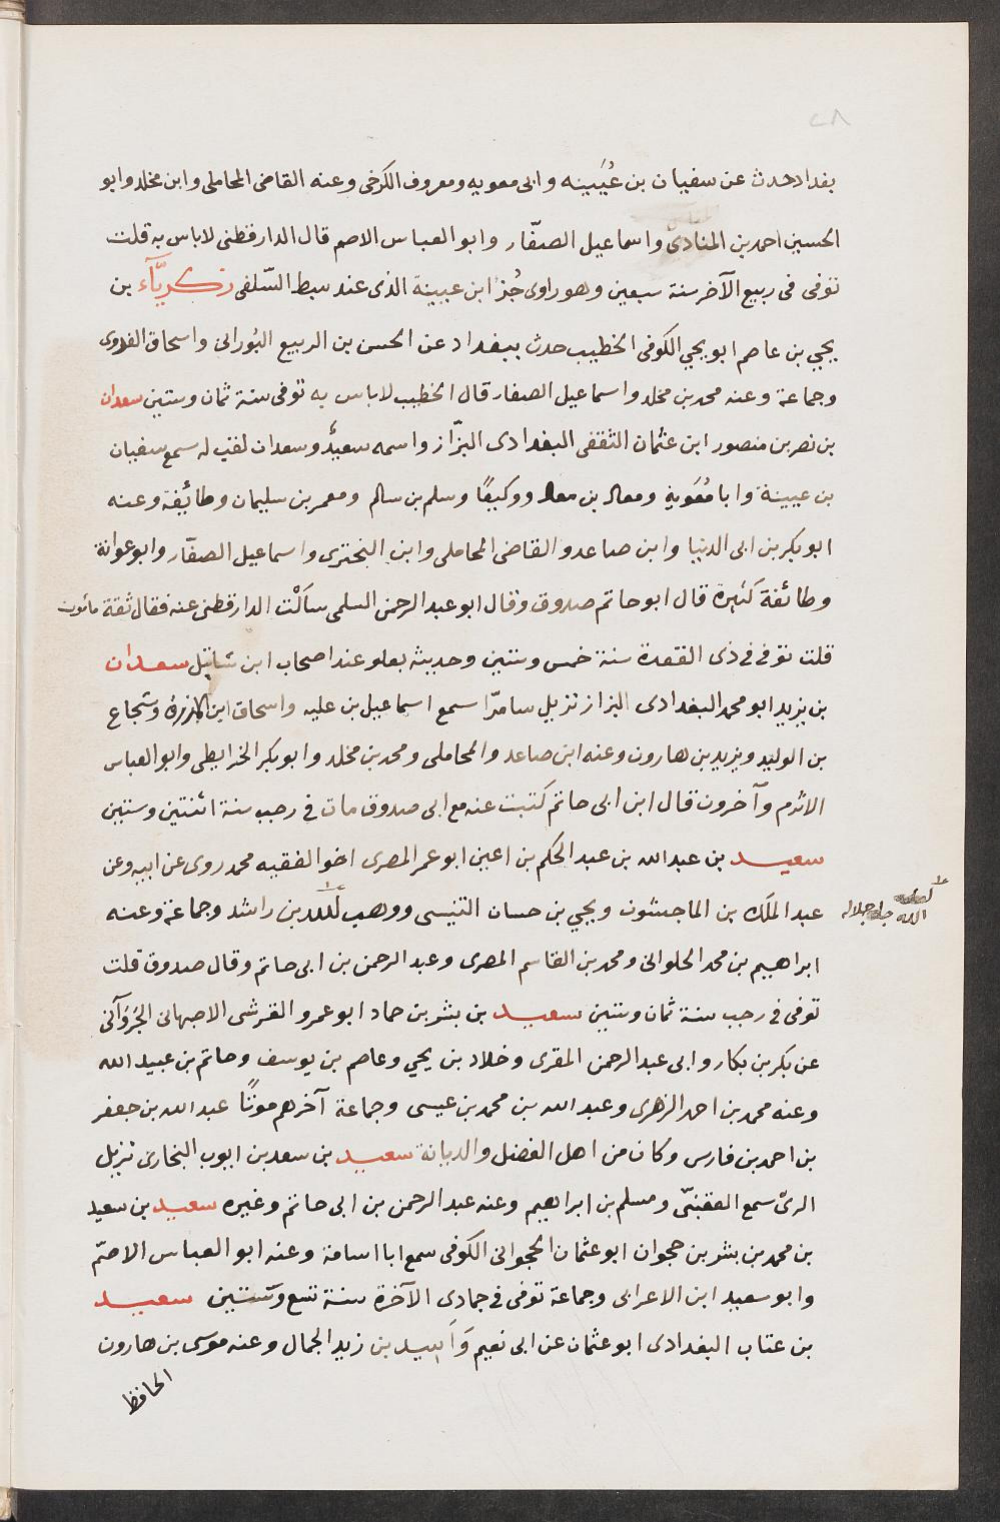 ٢٨
بغداد حدث عن سفيان بن عُيَيينه وابى معويه ومعروف الكرخى وعنه القاضى المحاملى وابن مخلد وابو
الحسين احمد بن المنادى واسماعيل الصفّار وابو العباس الاصم قال الدارقطنى لاباس به قلت
توفى فى ربيع الآخر سنة سبعين وهو راوى جُز ابن عيينة الذى عند سبط السّلفى زكريّآء بن
يحيى بن عاصم ابو يحيى الكوفى الخطيب حدث ببغداد عن الحسن بن الربيع البُورانى واسحاق الفروى
وجماعة وعنه محمد بن مخلد واسماعيل الصفار قال الخطيب لاباس به توفى سنة ثمان وستين سعدان
بن نصر بن منصور ابن عثمان الثقفى البغدادى البزّاز واسمه سعيدٌ وسعدان لقب له سمع سفيان
بن عيينة وابا مُعَوية ومعاد بن معاد ووكيعًا وسلم بن سالم ومعمر بن سليمان وطائفة وعنه
ابو بكر بن ابى الدنيا وابن صاعد والقاضى المحاملى وابن البخترى واسماعيل الصفّار وابو عوانة
وطائفة كثيرة قال ابو حاتم صدوق وقال ابو عبد الرحمن السلمى سألت الدارقطنى عنه فقال ثقة مائون
قلت توفى فى ذى القعدة سنة خمس وستين وحديثه يعلو عند اصحاب ابن شاتيل سعدان
بن يزيد ابو محمد البغدادى البزاز نزيل سامرّا سمع اسماعيل بن عليه واسحاق ابن الازرق وشجاع
بن الوليد ويزيد بن هارون وعنه ابن صاعد والمحاملى ومحمد بن مخلد وابو بكر الخرايطى وابو العباس
الاثرم وآخرون قال ابن ابى حاتم كتبت عنه مع ابى صدوق مات فى رجب سنة اثنتين وستين
سعيد بن عبد الله بن عبد الحكم بن اعين ابو عمر المصرى اخو الفقيه محمد روى عن ابيه وعن
عبد الملك بن الماجشون ويحيى بن حسان التنيسى ووهب لله بن راشد وجماعة وعنه
الله جل جلاله
ابراهيم بن محمد الحلوانى ومحمد بن القاسم المصرى وعبد الرحمن بن ابى حاتم وقال صدوق قلت
توفى فى رجب سنة ثمان وستين سعيد بن بشر بن حماد ابو عمرو القرشى الاصبهانى الجُرْوَآنى
عن بكر بن بكار وابى عبد الرحمن المقرى وخلاد بن يحيى وعاصم بن يوسف وحاتم بن عبيد الله
وعنه محمد بن احمد الزهرى وعبد الله بن محمد بن عيسى وجماعة آخرهم موتًا عبد الله بن جعفر
بن احمد بن فارس وكان من اهل الفضل والديانة سعيد بن سعد بن ايوب البخارى نزيل
الرىّ سمع القعنبّى ومسلم بن ابراهيم وعنه عبد الرحمن بن ابى حاتم وغيره سعيد بن سعيد
بن محمد بن بشر بن حجوان ابو عثمان الحجوانى الكوفى سمع ابا اسامة وعنه ابو العباس الاصمّ
وابو سعيد ابن الاعرابى وجماعة توفى فى جمادى الآخرة سنة تسع وستين سعيد
بن عتاب البغدادى ابو عثمان عن ابى نعيم وَاَسيد بن زيد الجمال وعنه موسى بن هارون
الحافظ